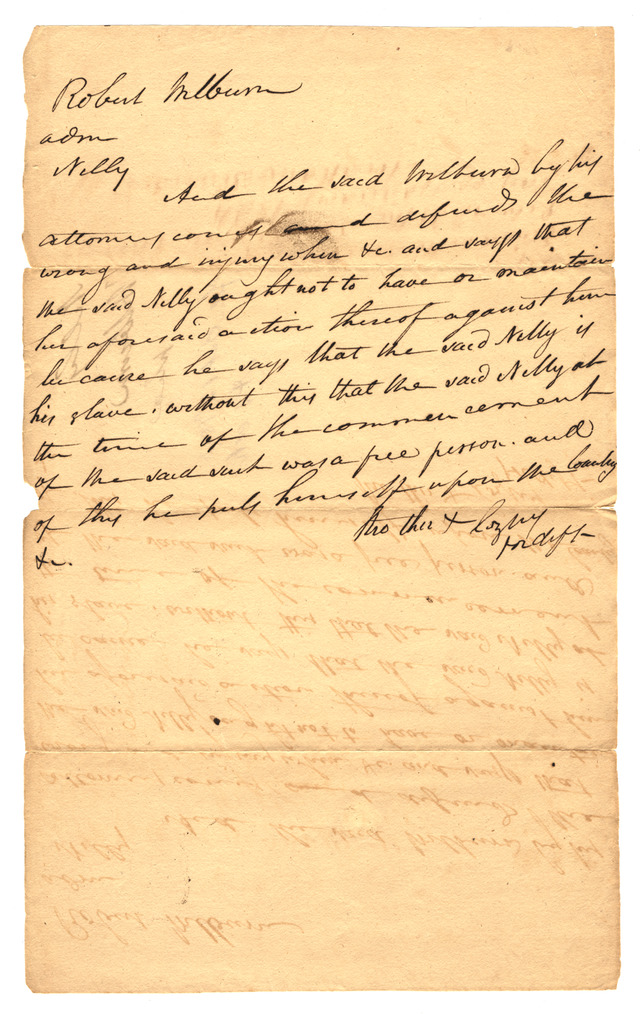 Robert Milburn
adm
Nelly
And the said Milburn by his
attorney comes and defends the
wrong and injury when &c. and says that
the said Nelly ought not to have or maintain
her aforesaid action thereof against him
because he says that the said Nelly is
his slave. without this that the said Nelly at
the time of the commencement
of the said suit was a free person. and
of this he puts himself upon the Country
&c.
Strother &
for deft